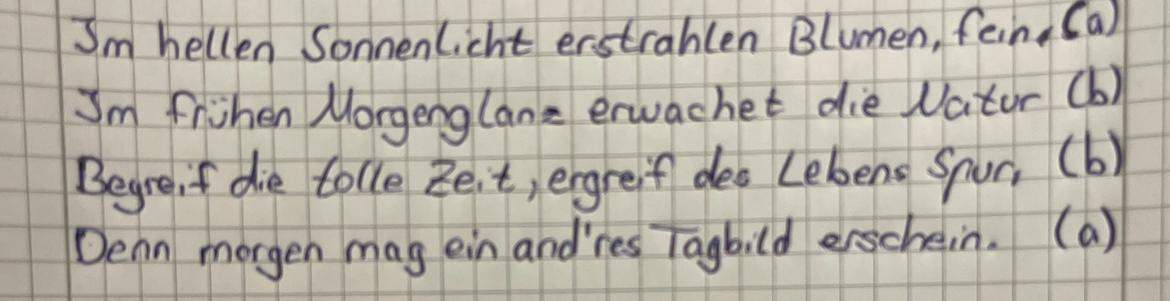 Im hellen Sonnenlicht erstrahlen Blumen, fein, (a)
Im frühen Morgenglanz erwachet die Natur (b)
Begreif die tolle Zeit, ergreif des Lebens Spur, (b)
Denn morgen mag ein and'res Tagbild erschein. (a)